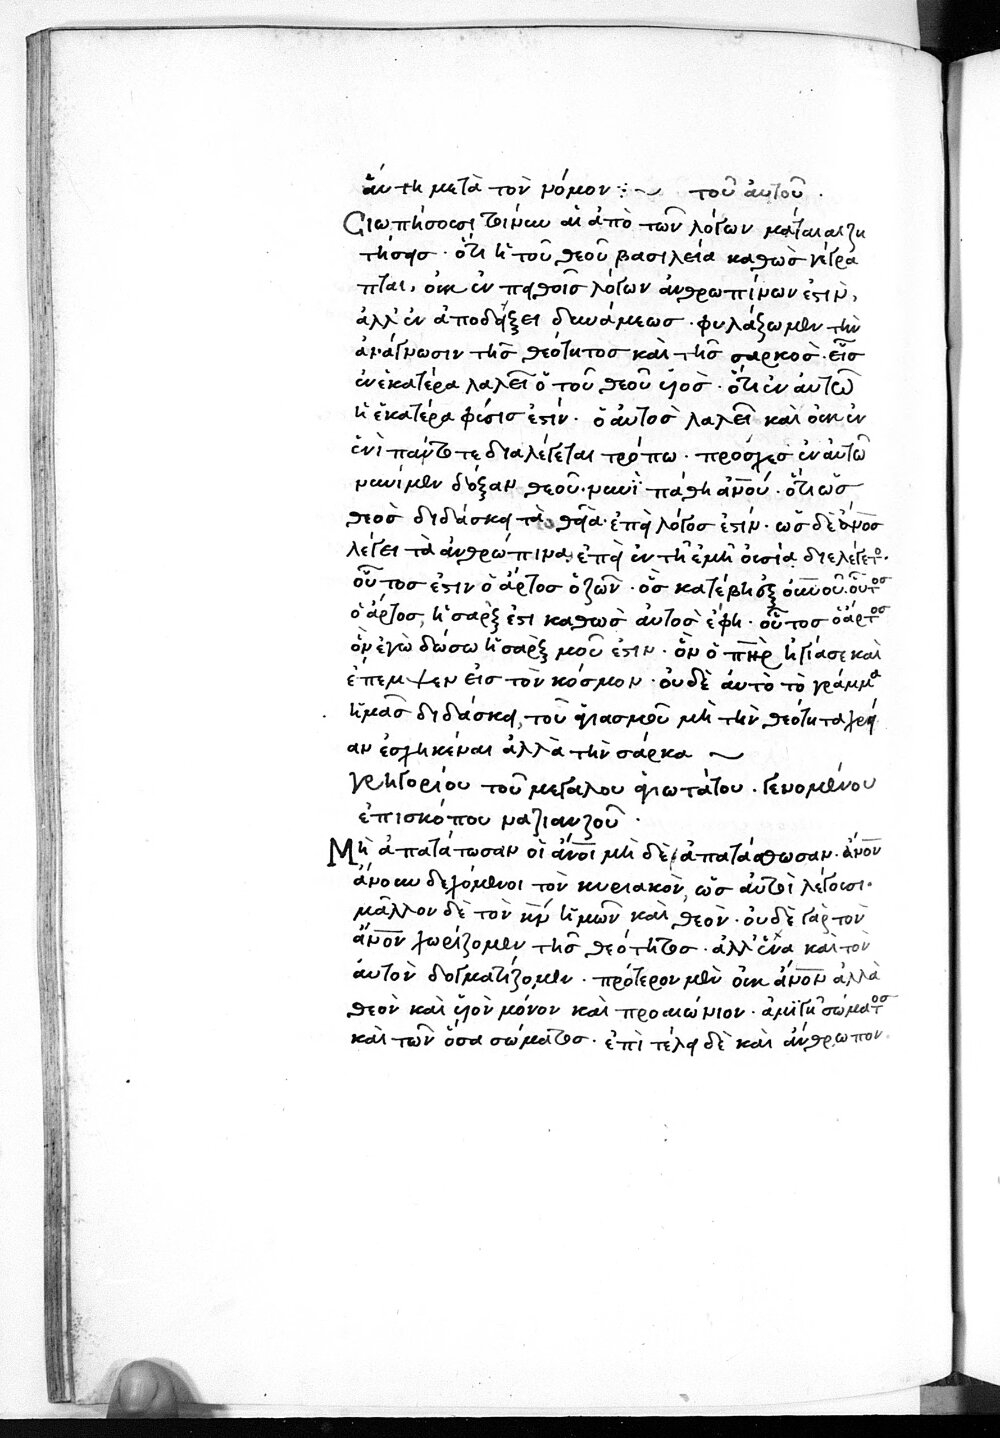 ἄν τῆ μετὰ τὸν νόμον :~ τοῦ ἀυτοῦ .
Σιωπήσουσι τοίνυν αἱ ἀπὸ τῶν λόγων μάταιαι ζη
τήσεις · ὅτι ἡ τοῦ θεοῦ βασιλεία καθὼσ γέγρα
πται, οὐκ ἐν πειθοῖσ λόγων ἀνθρωπίνων ἐστὶν,
ἀλλ' ἐν ἀποδείξει δυνάμεωσ · φυλάξωμεν τὴν
ἀνάγνωσιν τῆσ θεότητοσ καὶ τῆσ σαρκοσ · εἷσ
ἐν ἑκατέρα λαλεῖ ὁ τοῦ θεοῦ υἱοσ · ὅτι ἐν ἀυτῶ
ἡ ἑκατέρα φύσισ ἐστίν · ὁ ἀυτοσ λαλεῖ καὶ οὐκ ἐν
ἑνὶ πάντοτε διαλέγεται τρόπω · πρόσχεσ ἐν ἀυτῶ
νυνὶ μὲν δόξαν θεοῦ · νυνὶ πάθη ἀν̅ου · ὅτι ὡσ
θεὸσ διδάσκει τὰ θεῖα · ἐπεὶ λόγοσ ἐστίν · ὡσ δὲ ἄν̅οσ
λέγει τὰ ἀνθρώπινα · ἐπεὶ ἐν τῆ ἐμῆ οὐσία διελέγετο ·
οὗτοσ ἐστιν ὁ ἄρτοσ ὁ ζῶν · ὁσ κατέβη ἐξ οὐν̅ου · οὗτοσ
ὁ ἄρτοσ, ἡ σαρξ ἐστι καθωσ ἀυτοσ ἔφη · οὗτοσ ὁ ἄρτοσ
ὃν ἐγὼ δώσω ἡ σαρξ μου ἐστιν · ὃν ὁ πη̅ρ ἡγίασε καὶ
ἔπεμψεν εἰσ τὸν κόσμον · οὐδὲ ἀυτὸ τὸ γράμμα
ἡμᾶσ διδάσκει, τοῦ ἁγιασμοῦ μὴ τὴν θεότητα χρεί
αν ἐσχηκέναι ἀλλὰ τὴν σάρκα ~
γρηγορίου τοῦ μεγάλου ἁγιωτάτου · γενομένου
ἐπισκόπου ναζιανζοῦ ·
Μὴ ἀπατάτωσαν οἱ ἄν̅οι μὴ δὲ ἀπατάσθωσαν · ἄν̅ον
ἄνουν δεχόμενοι τὸν κυριακὸν, ὡσ ἀυτοὶ λέγουσι ·
μᾶλλον δὲ τὸν κν̅ ἡμῶν καὶ θεὸν · οὐδὲ γὰρ τὸν
ἄν̅ον χωρίζομεν τῆσ θεότητοσ · ἀλλ' ἕνα καὶ τὸν
ἀυτὸν δογματίζομεν · πρότερον μὲν οὐκ ἄν̅ον ἀλλὰ
θεὸν καὶ υἱὸν μόνον καὶ προαιώνιον · ἀμιγῆ σώματοσ
καὶ τῶν ὅσα σώματοσ · ἐπὶ τέλει δὲ καὶ ἄνθρωπον.